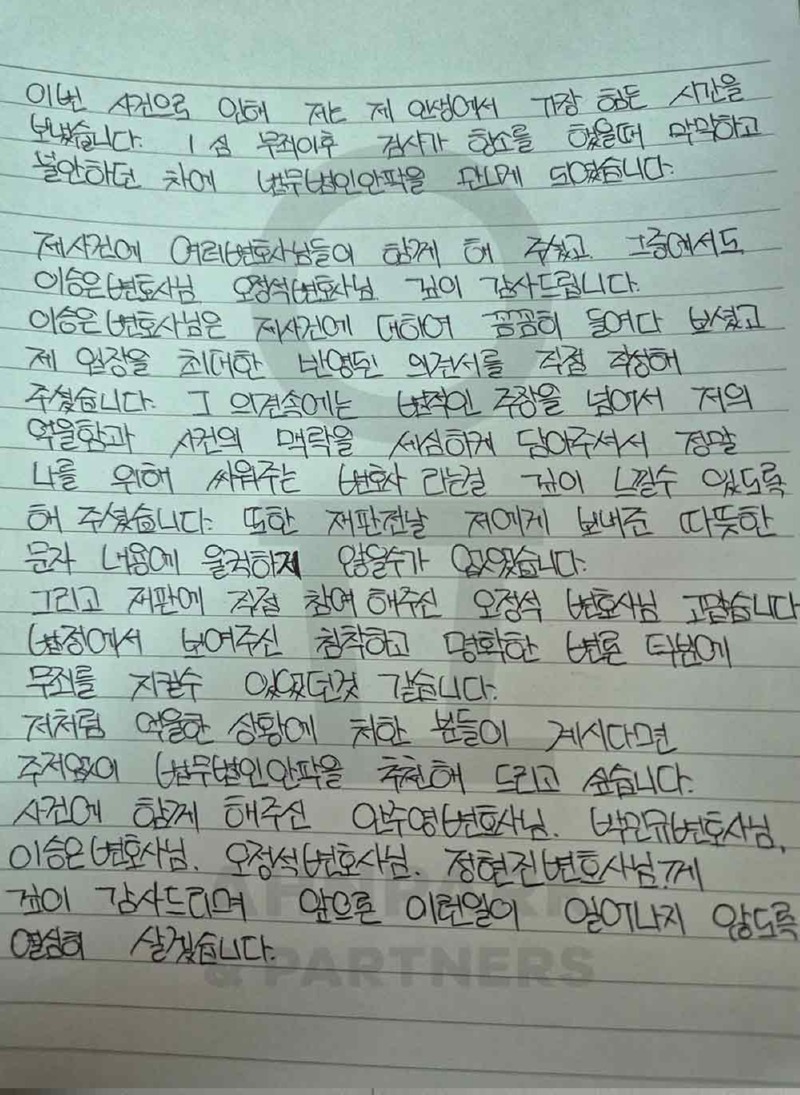 이번 사건으로 인해 저는 제 인생에서 가장 힘든 시간을
보냈습니다. 1심 무죄이후 검사가 항소를 했을때 막막하고
불안하던 차에 법무법인안팍을 만나게 되었습니다.
제사건에 여러변호사님들이 함께 해 주셨고 그중에서도
이승은변호사님 오정석변호사님 깊이 감사드립니다.
이승은변호사님은 저사건에 대하여 꼼꼼히 들여다 보셨고
제 입장을 최대한 반영된 의견서를 직접 작성해
주셨습니다. 그 의견속에는 법적인 주장을 넘어서 저의
억울함과 사건의 맥락을 세심하게 담아주셔서 정말
나를 위해 싸워주는 변호사 라는걸 깊이 느낄수 있도록
해 주셨습니다. 또한 재판전날 저에게 보내준 따뜻한
문자 내용에 울컥하지 않을수가 없었습니다.
그리고 재판에 직접 참여 해주신 오정석 변호사님 고맙습니다
법정에서 보여주신 침착하고 명확한 변론 덕분에
무죄를 지킬수 있었던것 같습니다.
저처럼 억울한 상황에 처한 분들이 계시다면
주저없이 법무법인안팍을 추천해 드리고 싶습니다.
사건에 함께 해주신 안주영변호사님. 박민규변호사님.
이승은변호사님. 오정석변호사님. 정현진변호사님께
깊이 감사드리며 앞으론 이런일이 일어나지 않도록
열심히 살겠습니다.
& PARTNERS